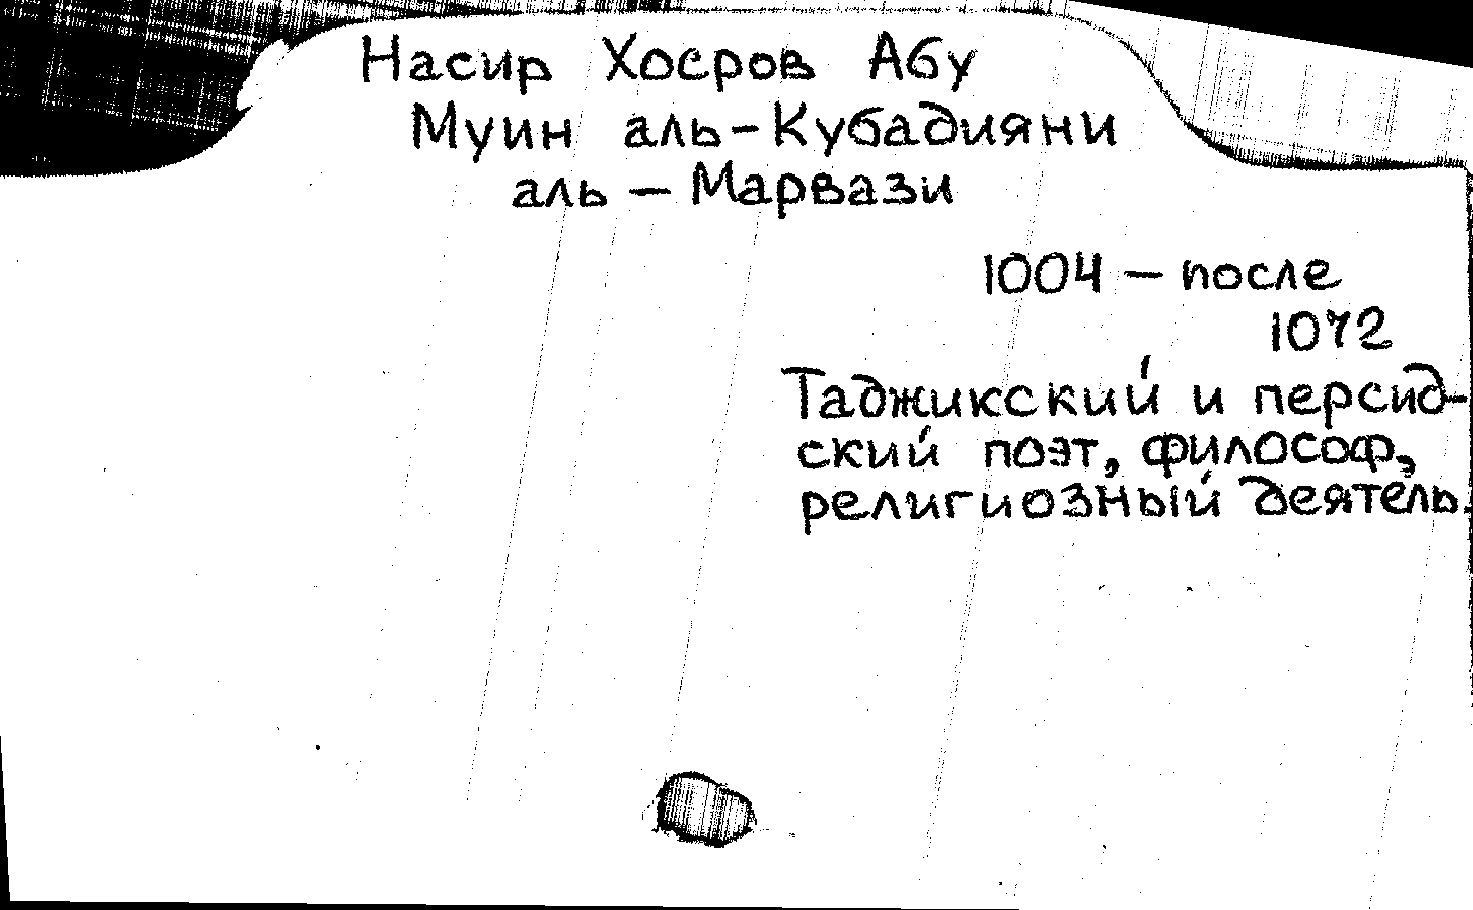 Насир Хосров Абу
Муин аль-Кубадияни
аль - Марвази
1004 - после
1072
Таджикский и персид-
ский поэт, философ,
религиозный деятель.